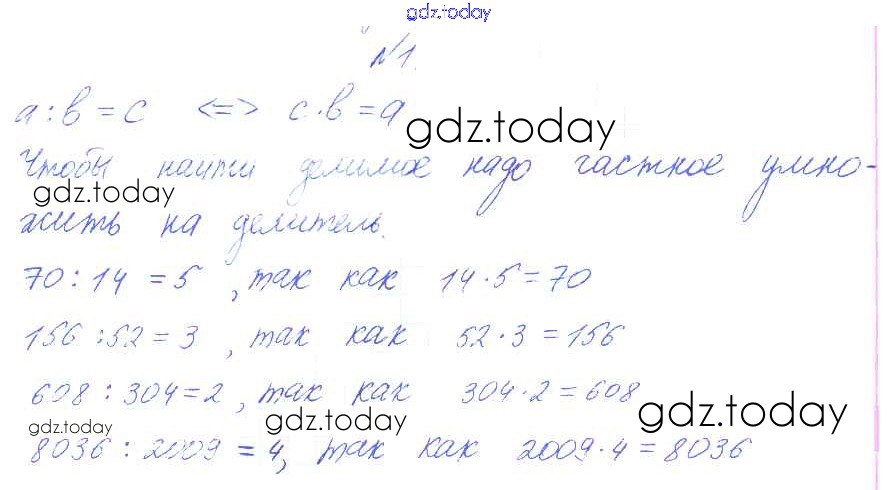 gdz.today
№1.
a : в = c <=> c · в = a
gdz.today
Чтобы найти делимое надо частное умно-
gdz.today
жить на делитель.
70 : 14 = 5 , так как 14 · 5 = 70
156 : 52 = 3 , так как 52 · 3 = 156
608 : 304 = 2 , так как 304 · 2 = 608
gdz.today
gdz.today
gdz.today
8036 : 2009 = 4, так как 2009 · 4 = 8036